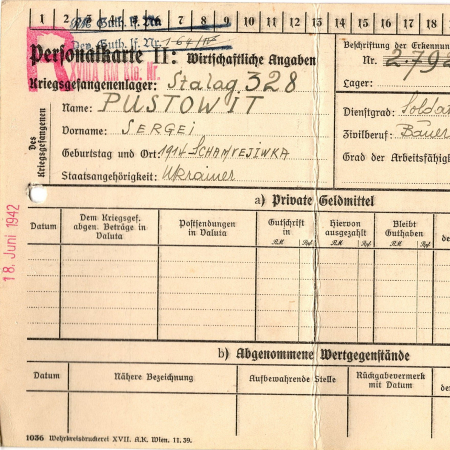 1 2 3 4 5 6 7 8 9 10 11 12 13 14 15 16 17 18
Guth. lf. Nr.
Dev. Guth. lf. Nr.
Personalkarte II: Wirtschaftliche Angaben
XVIIA KM Stg. Nr.
Beschriftung der Erkennun
Nr. 2.792
Kriegsgefangenenlager: Stalag 328
Lager:
Des Kriegsgefangenen
Name: PUSTOWIT
Dienstgrad: Soldat
Vorname: SERGEI
Zivilberuf: Bauer
Geburtstag und Ort: 1914 SCHAMREJIWKA
Grad der Arbeitsfähig
Staatsangehörigkeit: Ukrainer
18. Juni 1942
a) Private Geldmittel
Datum
Dem Kriegsgef. abgen. Beträge in Valuta
Postsendungen in Valuta
Gutschrift in
RM Rpf
Hiervon ausgezahlt
RM Rpf
Bleibt Guthaben
RM Rpf
de
b) Abgenommene Wertgegenstände
Datum
Nähere Bezeichnung
Aufbewahrende Stelle
Rückgabevermerk mit Datum
de
1036 Wehrkreisdruckerei XVII. A.K. Wien. 11.39.